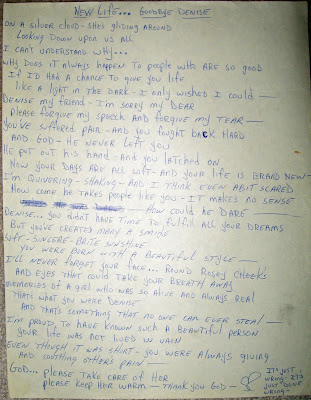 NEW LIFE... GOODBYE DENISE
ON A SILVER CLOUD - SHE'S GLIDING AROUND
LOOKING DOWN UPON US ALL
I CAN'T UNDERSTAND WHY...
WHY DOES IT ALWAYS HAPPEN TO PEOPLE WHO ARE SO GOOD
IF I'D HAD A CHANCE TO GIVE YOU LIFE
LIKE A LIGHT IN THE DARK - I ONLY WISHED I COULD —
DENISE MY FRIEND - I'M SORRY MY DEAR
PLEASE FORGIVE MY SPEECH AND FORGIVE MY TEAR —
YOU'VE SUFFERED PAIN - AND YOU FOUGHT BACK HARD
AND - GOD - HE NEVER LEFT YOU
HE PUT OUT HIS HAND - AND YOU LATCHED ON
NOW YOUR DAYS ARE ALL SOFT - AND YOUR LIFE IS BRAND NEW —
I'M QUIVERING - SHAKING - AND I THINK EVEN A BIT SCARED
HOW COME HE TAKES PEOPLE LIKE YOU - IT MAKES NO SENSE
— HOW COULD HE DARE —
DENISE... YOU DIDN'T HAVE TIME TO FULFILL ALL YOUR DREAMS
BUT YOU'VE CREATED MANY A SMILE
SOFT - SINCERE - BRITE SUNSHINE
YOU WERE BORN WITH A BEAUTIFUL STYLE —
I'LL NEVER FORGET YOUR FACE... ROUND ROSEY CHEEKS
AND EYES THAT COULD TAKE YOUR BREATH AWAY
MEMORIES OF A GIRL WHO WAS SO ALIVE AND ALWAYS REAL
THAT'S WHAT YOU WERE DENISE
AND THAT'S SOMETHING THAT NO ONE CAN EVER STEAL —
I'M PROUD, TO HAVE KNOWN SUCH A BEAUTIFUL PERSON
YOUR LIFE WAS NOT LIVED IN VAIN
EVEN THOUGH IT WAS SHORT - YOU WERE ALWAYS GIVING
AND SOOTHING OTHERS PAIN —
GOD... PLEASE TAKE CARE OF HER
PLEASE KEEP HER WARM — THANK YOU GOD —
IT'S JUST
WRONG - ITS
JUST
WRONG -